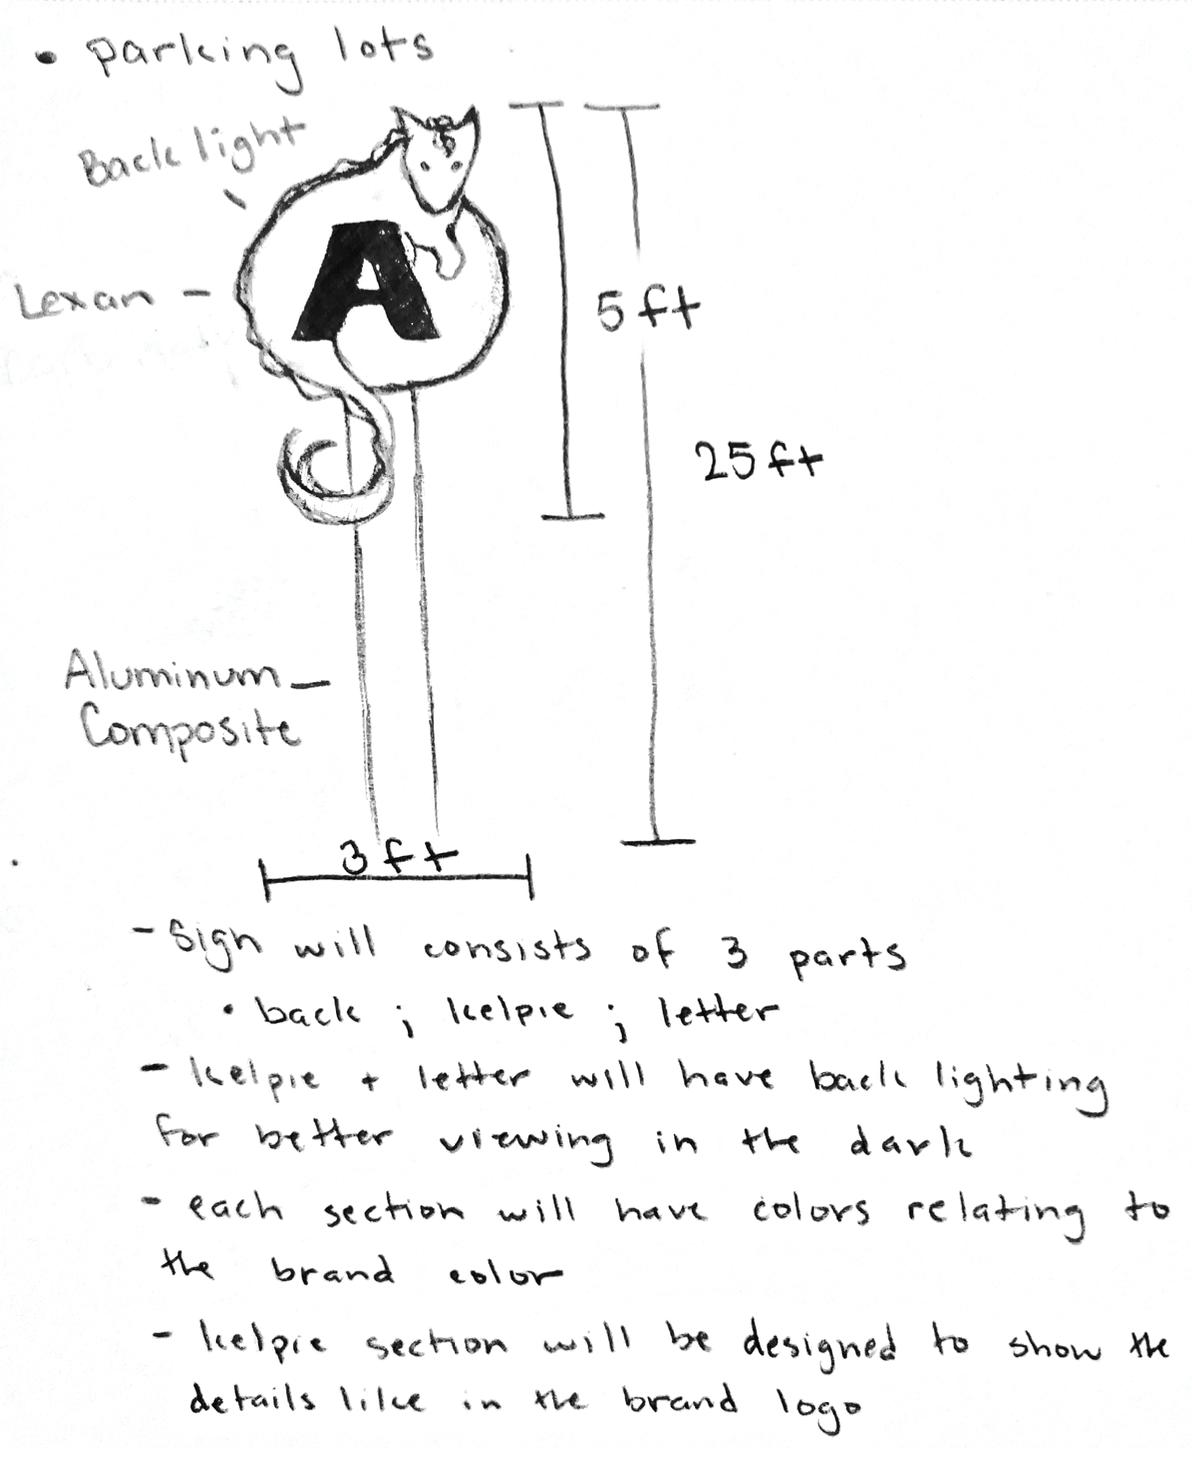 • parking lots
Back light
A
Lexan -
5 ft
25 ft
Aluminum -
Composite
3 ft
- Sign will consists of 3 parts
• back ; kelpie ; letter
- kelpie + letter will have back lighting
for better viewing in the dark
- each section will have colors relating to
the brand color
- kelpie section will be designed to show the
details like in the brand logo